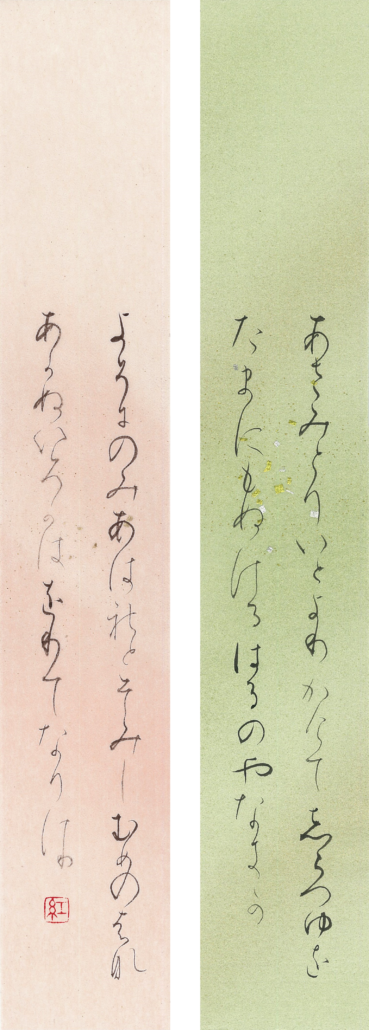 あさみとりいとよりかけてしらつゆを
たまにもぬけるはるのやなきか
よそにのみあはれとそみしむめのはな
あかぬいろかはをりてなりけり
紅